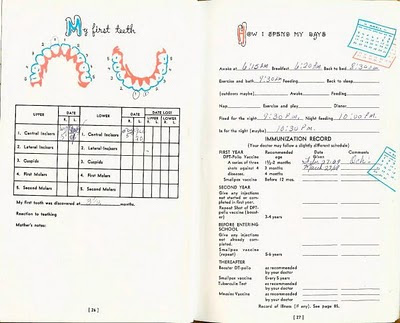 My first teeth
UPPER DATE LOWER DATE DATE LOST
R. L. R. L. UPPER LOWER
R. L. R. L.
1. Central Incisors 1. Central Incisors
2. Lateral Incisors 2. Lateral Incisors
3. Cuspids 3. Cuspids
4. First Molars 4. First Molars
5. Second Molars 5. Second Molars
My first tooth was discovered at months.
Reaction to teething
Mother's notes:
[ 26 ]
HOW I SPEND MY DAYS
Awake at 6:15 am Breakfast 6:20 P.m. Back to bed 8:30 am
Exercise and bath 9:30 am Feeding Back to sleep
(outdoors maybe). Awake Feeding
Nap Exercise and play Dinner
Fixed for the night 9:30 P.M. Night feeding 10:00 P.m.
In for the night (maybe) 10:30 P.m.
IMMUNIZATION RECORD
(Your doctor may follow a slightly different schedule)
FIRST YEAR Recommended Date
DPT-Polio Vaccine age Given Comments
A series of three 1½-2 months
shots against 4 3 months
diseases. 4 months
Smallpox vaccine Before 12 mos.
SECOND YEAR
Give any injections
not started or com-
pleted in first year.
Repeat Shot of DPT-
polio vaccine (boost-
er) 3-4 years
BEFORE ENTERING
SCHOOL
Give any injections
not already com-
pleted.
Smallpox vaccine
(repeat) 5-6 years
THEREAFTER
Booster DT-polio as recommended
by your doctor
Smallpox vaccine Every 5 years
Tuberculin Test as recommended
by your doctor
Measles Vaccine as recommended
by your doctor
Record of illness (if any). See page 85.
[ 27 ]